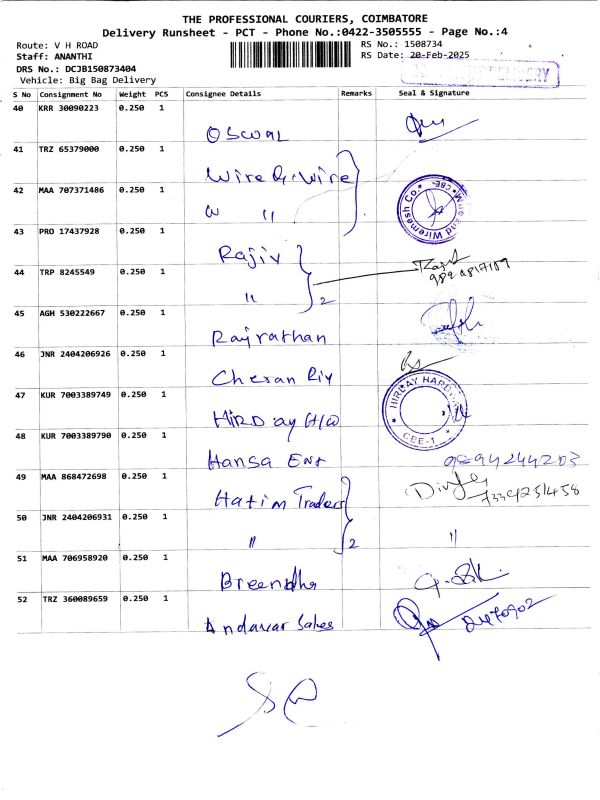 THE PROFESSIONAL COURIERS, COIMBATORE
Delivery Runsheet - PCT - Phone No.:0422-3505555 - Page No.:4
Route: V H ROAD
RS No.: 1508734
Staff: ANANTHI
RS Date: 20-Feb-2025
DRS No.: DCJB150873404
Vehicle: Big Bag Delivery
S No Consignment No Weight PCS Consignee Details Remarks Seal & Signature
40 KRR 30090223 0.250 1
OSWAL
41 TRZ 65379000 0.250 1
Wire & Wire
42 MAA 707371486 0.250 1
"
Wire and Wiremesh Co. * CBE- *
43 PRO 17437928 0.250 1
Rajiv
44 TRP 8245549 0.250 1
" 2
45 AGH 530222667 0.250 1
Rajrathan
46 JNR 2404206926 0.250 1
Cheran Riy
47 KUR 7003389749 0.250 1
HIRDAY H/W
HIRDAY HARDWARE * CBE-1 *
48 KUR 7003389790 0.250 1
Hansa Ent 9894244203
49 MAA 868472698 0.250 1
Hatim Traders
50 JNR 2404206931 0.250 1
" 2 "
51 MAA 706958920 0.250 1
Breendha
52 TRZ 360089659 0.250 1
Andavar Sales 2470902